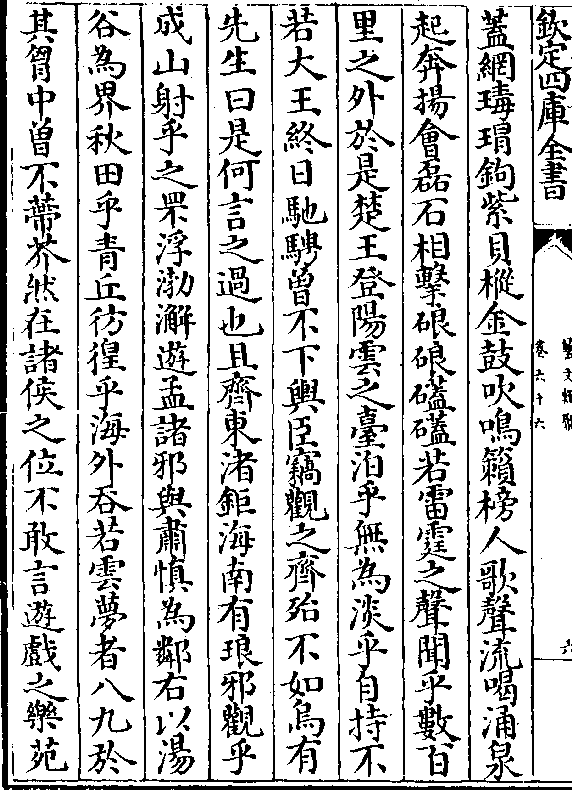 欽定四庫全書
藝文類聚
卷六十六
六
蓋網瑇瑁鉤紫貝樅金鼓吹鳴籟榜人歌聲流喝涌泉
起奔揚會磊石相擊硠硠礚礚若雷霆之聲聞乎數百
里之外於是楚王登陽雲之臺泊乎無為淡乎自持不
若大王終日馳騁曾不下輿臣竊觀之齊殆不如烏有
先生曰是何言之過也且齊東渚鉅海南有琅邪觀乎
成山射乎之罘浮渤澥遊孟諸邪與肅慎為鄰右以湯
谷為界秋田乎青丘彷徨乎海外吞若雲夢者八九於
其胷中曾不蔕芥然在諸侯之位不敢言遊戲之樂苑